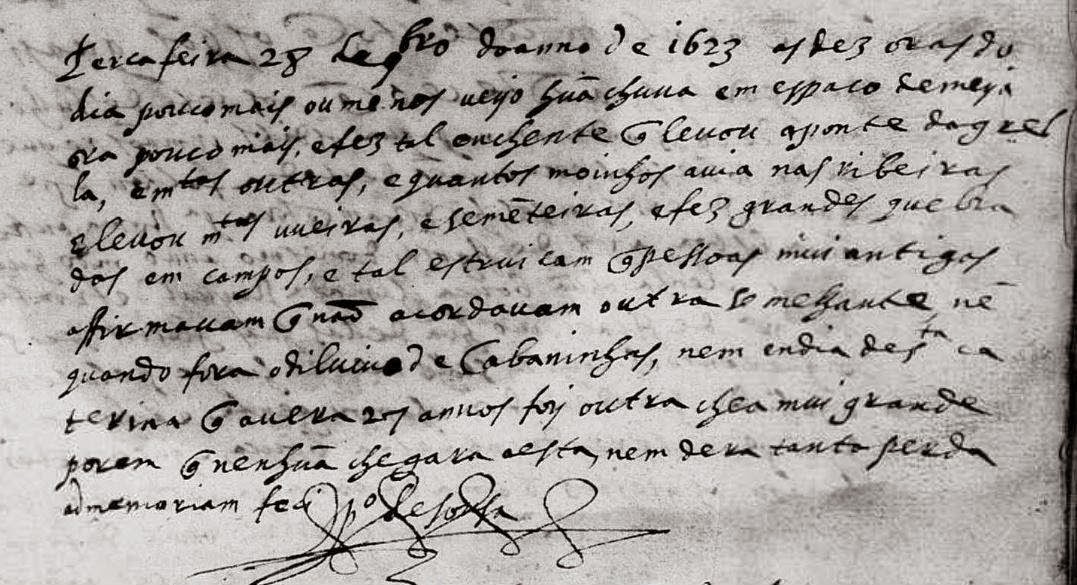 Terca feira 28 de 9bro do anno de 1623 as dez oras do
dia pouco mais ou menos ueyo hũa chuua em espaco de meya
ora pouco mais, e fez tal enchente q̃ leuou a ponte da grel
la, e mtas outras, e quantos moinhos auia nas ribeiras
e leuou mtas uueiras, e semẽteiras, e fez grandes quebra
das em campos, e tal estruicam q̃ pessoas mui antigas
affirmauam q̃ naõ acordauam outra semelhante, nẽ
quando fora o diluuio de Cabaninhas, nem en dia de sta ca
terina q̃ auera 25 annos foy outra chea mui grande
porem q̃ nenhũa chegara a esta, nem dera tanta perda
ad memoriam feci Po de sousa